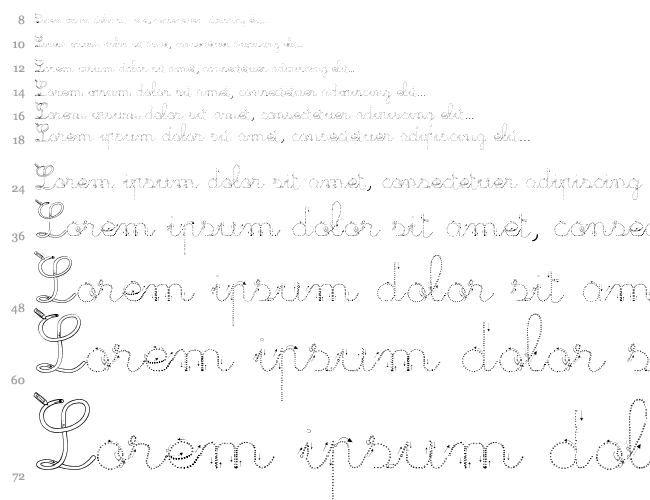 8 Lorem ipsum dolor sit amet, consectetuer adipiscing elit...
10 Lorem ipsum dolor sit amet, consectetuer adipiscing elit...
12 Lorem ipsum dolor sit amet, consectetuer adipiscing elit...
14 Lorem ipsum dolor sit amet, consectetuer adipiscing elit...
16 Lorem ipsum dolor sit amet, consectetuer adipiscing elit...
18 Lorem ipsum dolor sit amet, consectetuer adipiscing elit...
24 Lorem ipsum dolor sit amet, consectetuer adipiscing
36 Lorem ipsum dolor sit amet, consec
48 Lorem ipsum dolor sit am
60 Lorem ipsum dolor s
72 Lorem ipsum dol